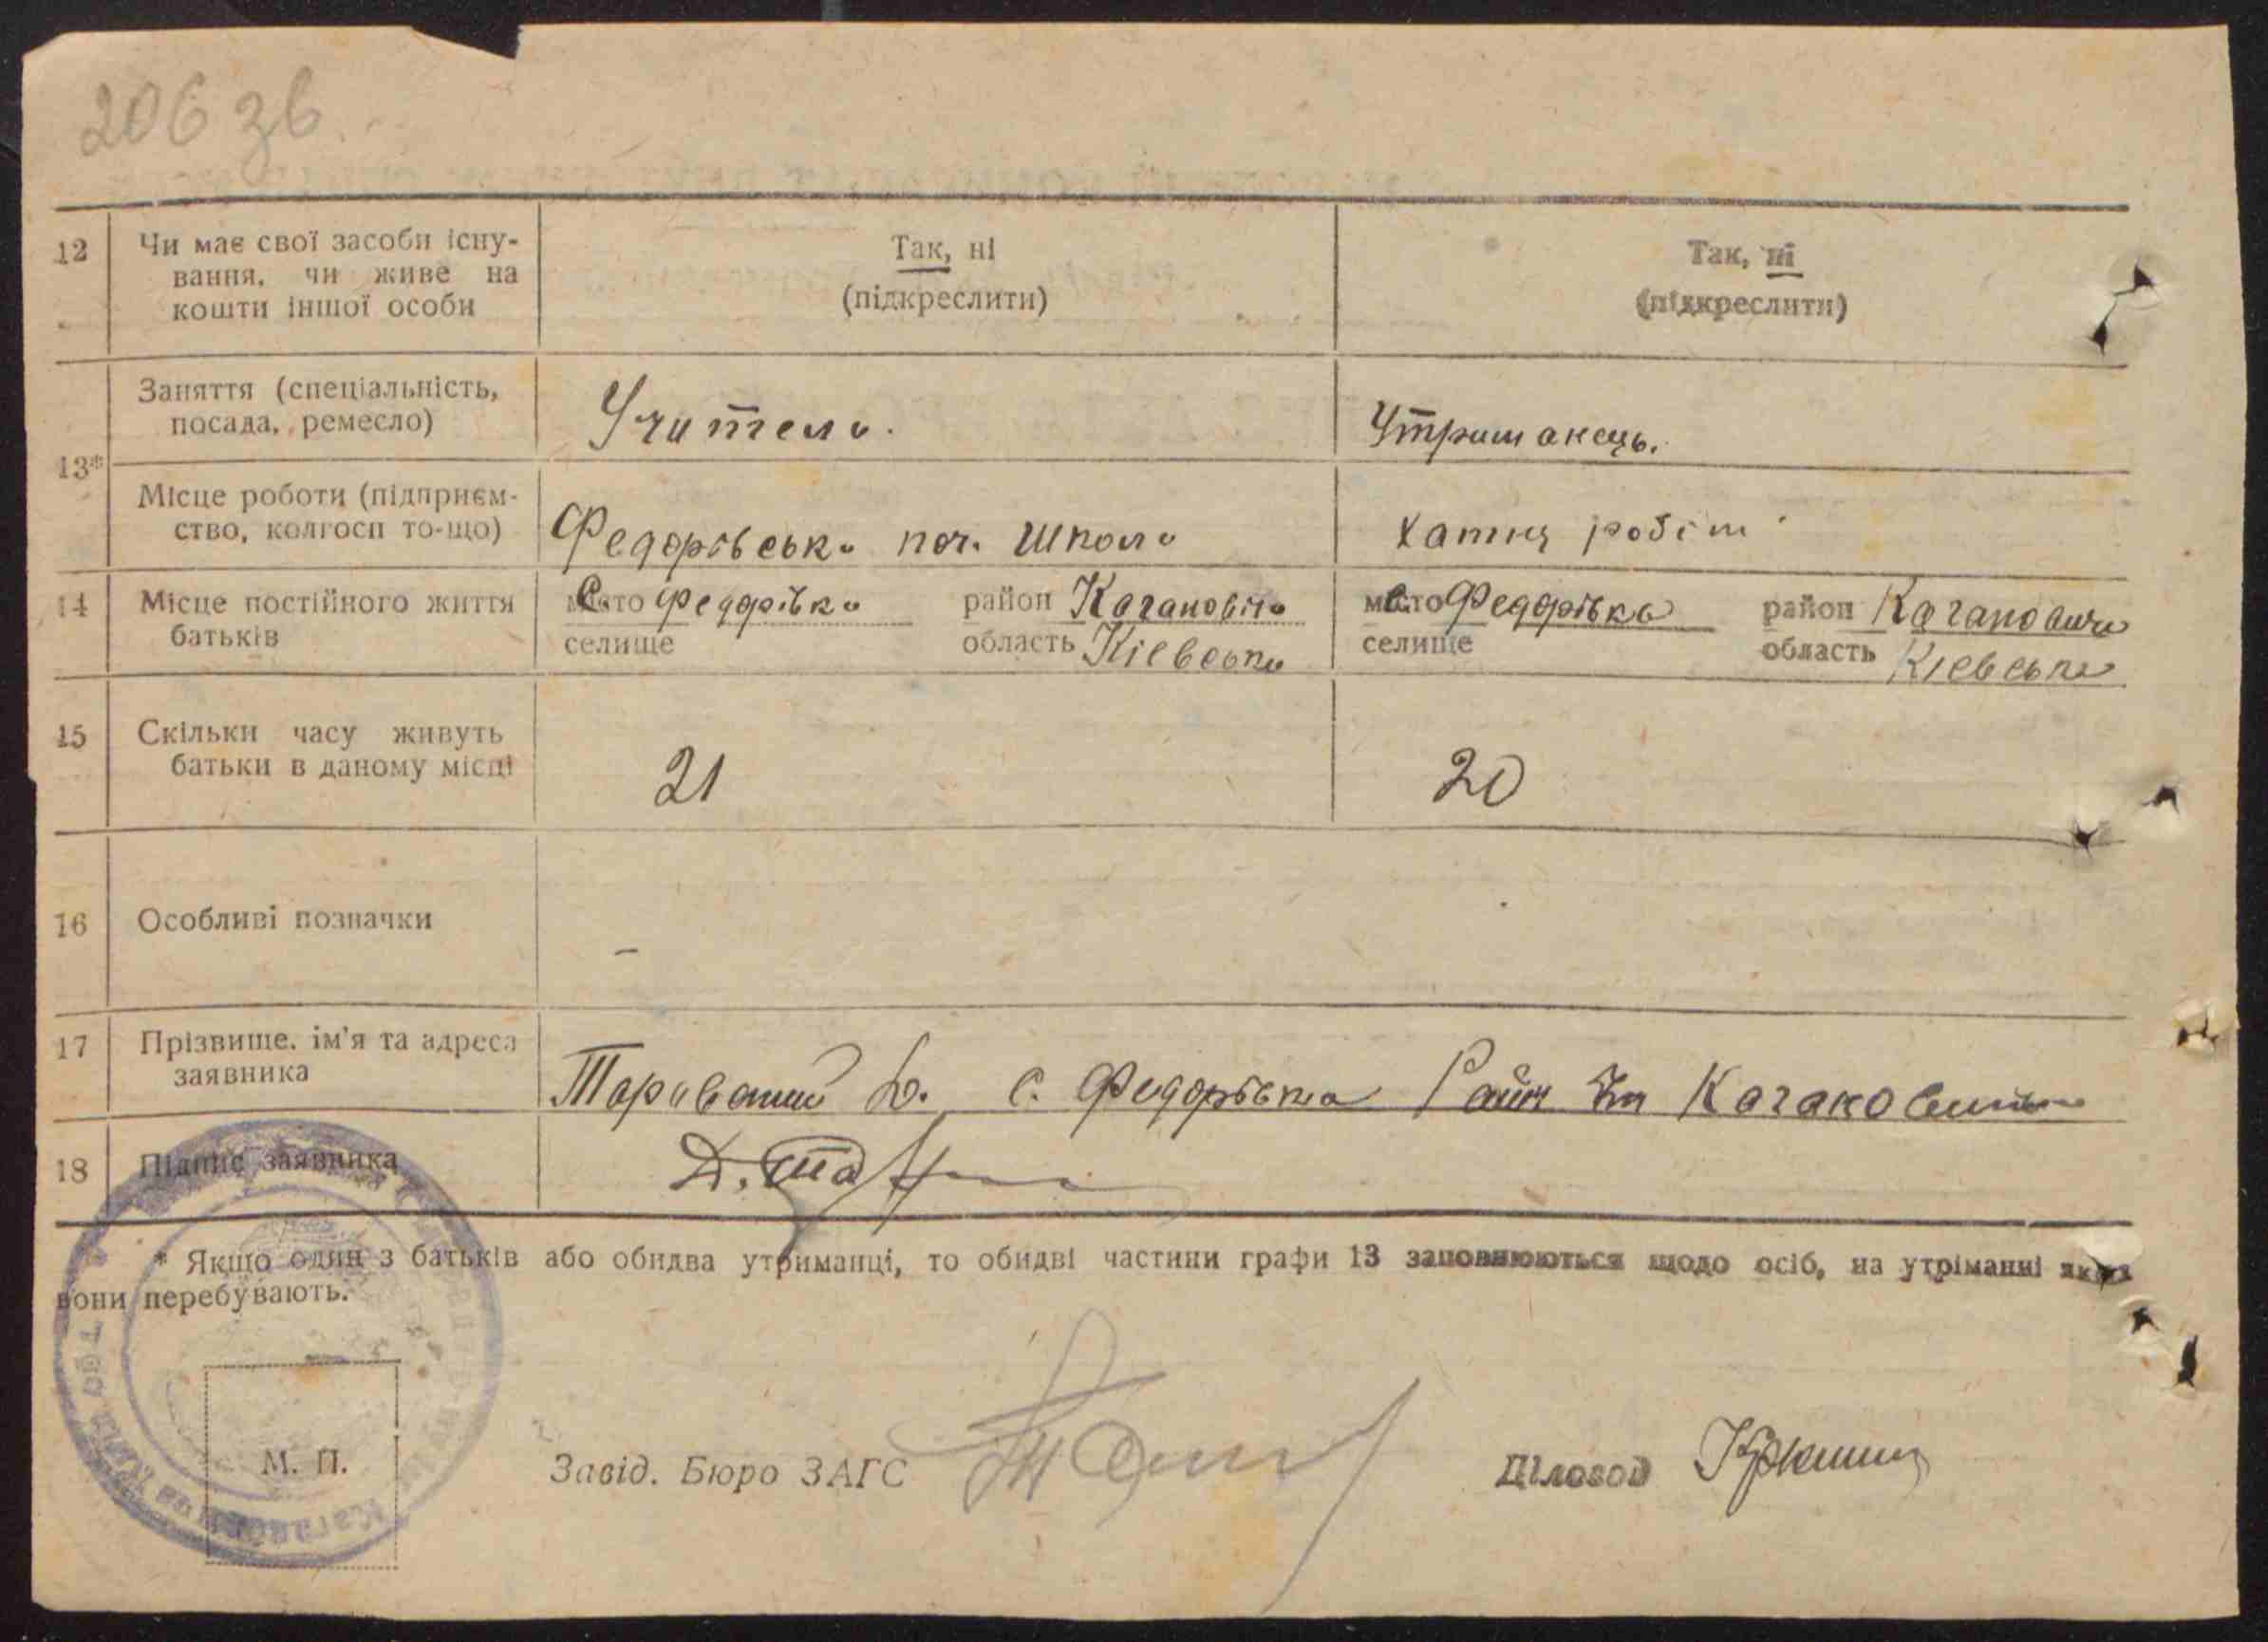 206 зв
12 Чи має свої засоби існу-
вання, чи живе на
кошти іншої особи
Так, ні
(підкреслити)
Так, ні
(підкреслити)
13*
Заняття (спеціальність,
посада, ремесло)
Учитель.
Утриманець.
Місце роботи (підприєм-
ство, колгосп то-що)
Федорівська поч. школа
хатня робіт
14 Місце постійного життя
батьків
місто с. Федорівка район Кагановіча
селище область Кіевська
місто с. Федорівка район Кагановича
селище область Кіевська
15 Скільки часу живуть
батьки в даному місці
21
20
16 Особливі позначки
-
17 Прізвище, ім'я та адреса
заявника
Д. с. Федорівка Район Ім Кагановича
18 Підпис заявника
Д. Та
* Якщо один з батьків або обидва утриманці, то обидві частини графи 13 заповнюються щодо осіб, на утріманні яких
вони перебувають.
М. П.
Завід. Бюро ЗАГС
Діловод